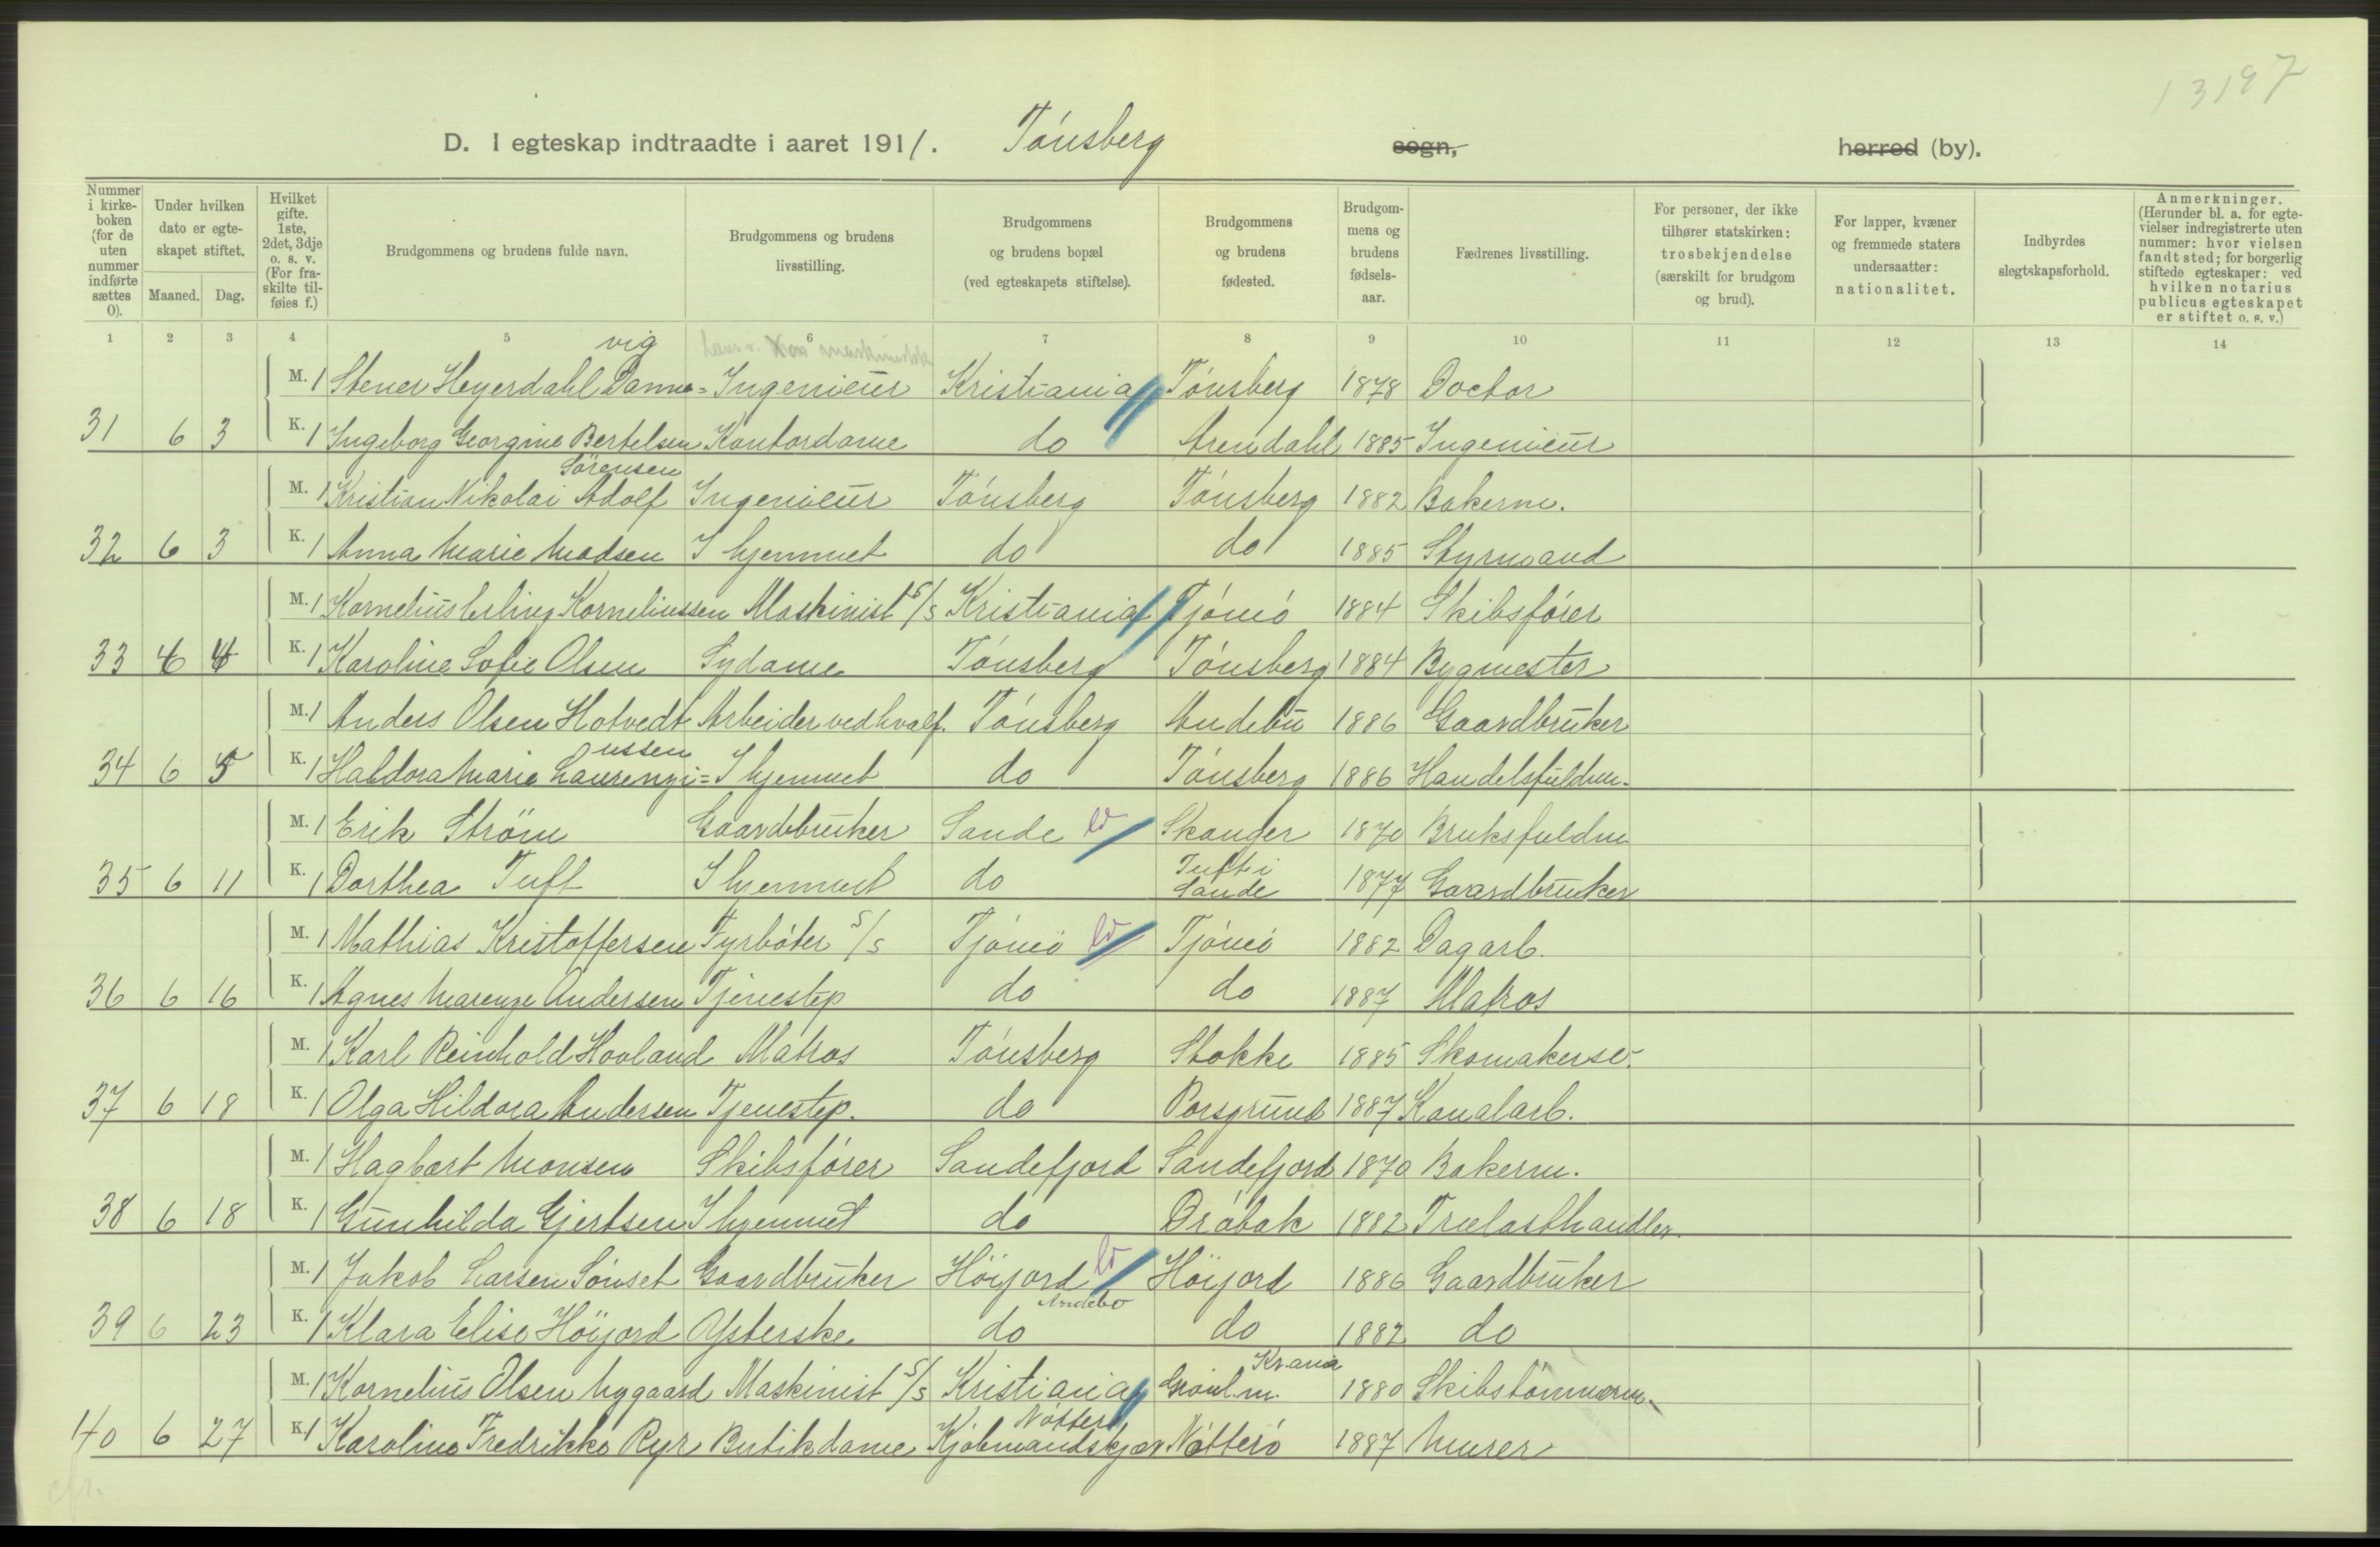 13197
D. I egteskap indtraadte i aaret 1911. Tönsberg sogn, herred (by).
Nummer i kirkeboken (for de uten nummer indførte sættes 0).
Under hvilken dato er egteskapet stiftet.
Maaned. Dag.
Hvilket gifte. 1ste, 2det, 3dje o. s. v. (For fraskilte tilføies f.)
Brudgommens og brudens fulde navn.
Brudgommens og brudens livsstilling.
Brudgommens og brudens bopæl (ved egteskapets stiftelse).
Brudgommens og brudens fødested.
Brudgommens og brudens fødselsaar.
Fædrenes livsstilling.
For personer, der ikke tilhører statskirken: trosbekjendelse (særskilt for brudgom og brud).
For lapper, kvæner og fremmede staters undersaatter: nationalitet.
Indbyrdes slegtskapsforhold.
Anmerkninger. (Herunder bl. a. for egtevielser indregistrerte uten nummer: hvor vielsen fandt sted; for borgerlig stiftede egteskaper: ved hvilken notarius publicus egteskapet er stiftet o. s. v.)
1 2 3 4 5 6 7 8 9 10 11 12 13 14
vig
M. 1 Stener Heyerdahl Danne= Ingenieur Kristiania Tönsberg 1878 Doctor
31 6 3 K. 1 Ingeborg Georgine Bertelsen Kontordame do Arendahl 1885 Ingenieur
Sörensen
M. 1 Kristian Nikolai Adolf Ingenieur Tönsberg Tönsberg 1882 Bakerm.
32 6 3 K. 1 Anna Marie Madsen I hjemmet do do 1885 Styrmand
M. 1 Kornelius Erling Korneliussen Maskinist S/S Kristiania Tjömö 1884 Skibsförer
33 6 4 K. 1 Karoline Sofie Olsen Sydame Tönsberg Tönsberg 1884 Bygmester
M. 1 Anders Olsen Hotvedt Arbeider ved hvalf. Tönsberg Andebu 1886 Gaardbruker
ussen
34 6 5 K. 1 Haldora Marie Laurenzi= I hjemmet do Tönsberg 1886 Handelsfuldm.
M. 1 Erik Ström Gaardbruker Sande ld Skauger 1870 Bruksfuldm
Tuft i
35 6 11 K. 1 Dorthea Tuft I hjemmet do Sande 1877 Gaardbruker
M. 1 Mathias Kristoffersen Fyrböter S/S Tjömö ld Tjömö 1882 Dagarb.
36 6 16 K. 1 Agnes Marenze Andersen Tjenestep do do 1887 Matros
M. 1 Karl Reinhold Hovland Matros Tönsberg Stokke 1885 Skomakerse.
37 6 18 K. 1 Olga Hildora Andersen Tjenestep. do Porsgrund 1887 Kanalarb.
M. 1 Hagbart Monsen Skibsförer Sandefjord Sandefjord 1870 Bakerm.
38 6 18 K. 1 Gunhilda Gjertsen I hjemmet do Dröbak 1882 Trælasthandler.
M. 1 Jakob Larsen Sönset Gaardbruker Höijord ld Höijord 1886 Gaardbruker
Andebo
39 6 23 K. 1 Klara Elise Höijord Ysterske do do 1882 do
Kr.ania
M. 1 Kornelius Olsen Nygaard Maskinist S/S Kristiania 1880 Skibstömmerm.
Nötterö
40 6 27 K. 1 Karoline Fredrikke Ryr Butikdame Kjöbmandskjær Nötterö 1887 Murer